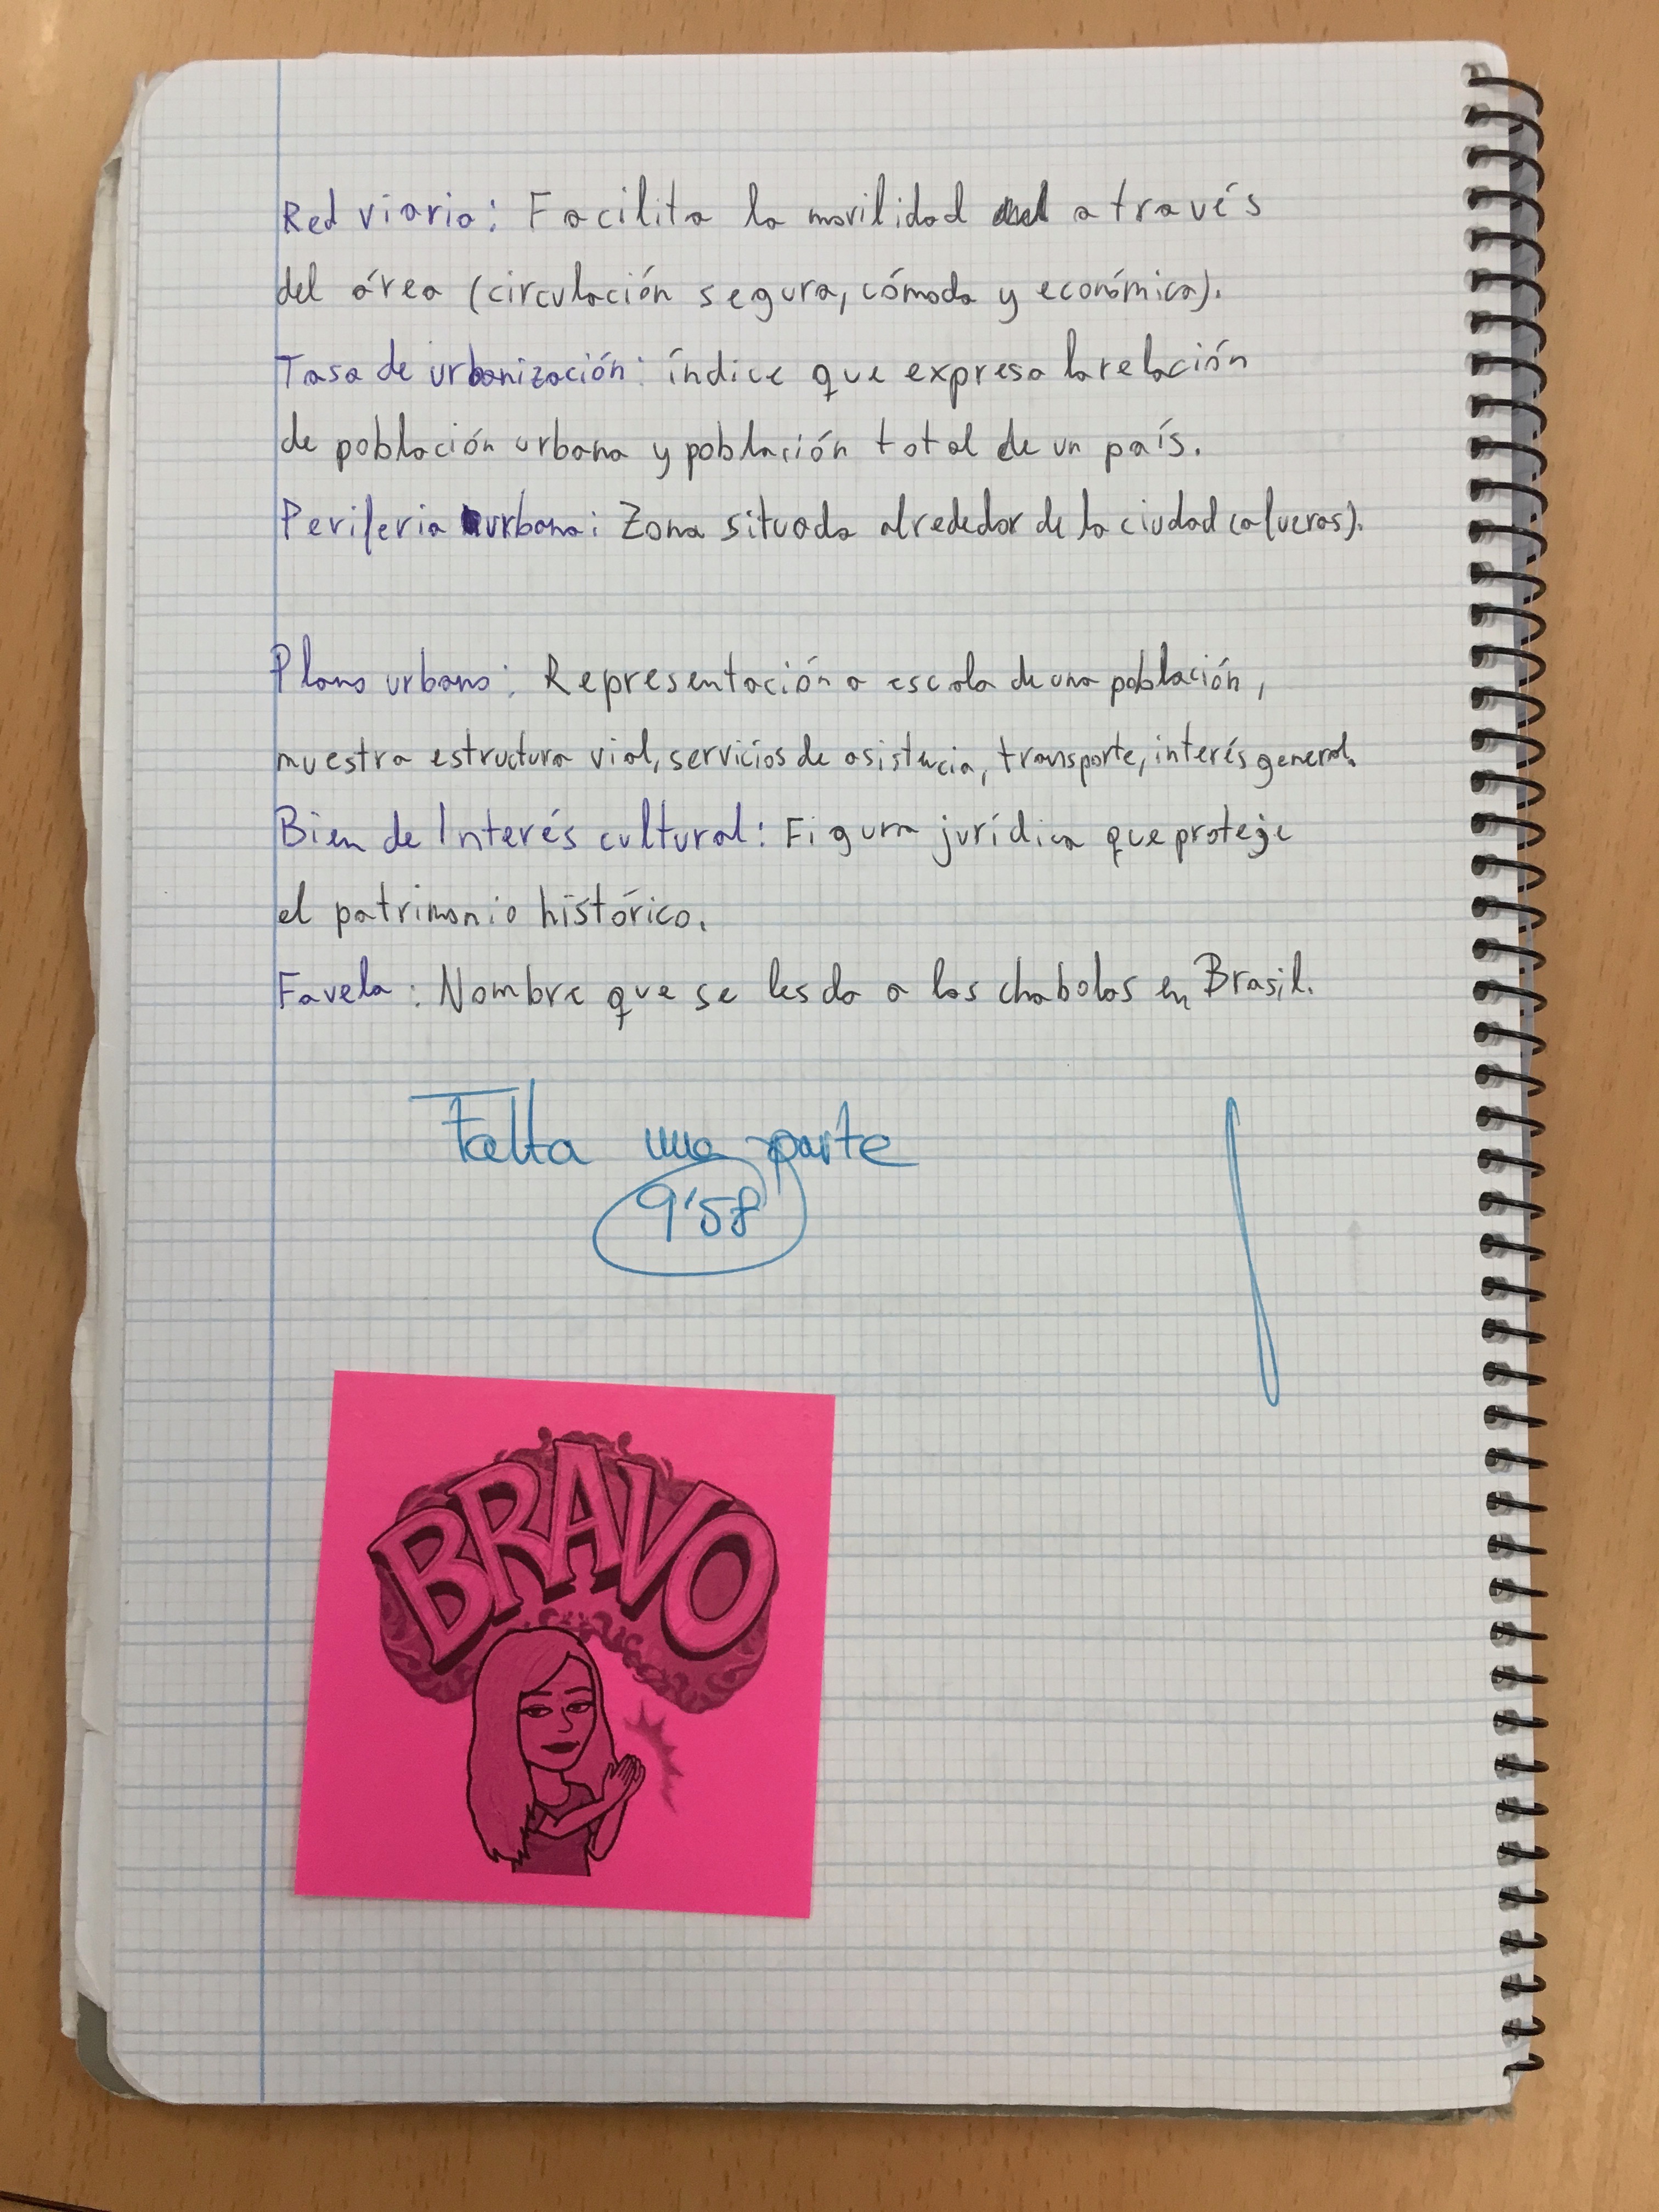 Red viaria: Facilita la movilidad a través
del área (circulación segura, cómoda y económica).
Tasa de urbanización: índice que expresa la relación
de población urbana y población total de un país.
Periferia urbana: Zona situada alrededor de la ciudad (afueras).
Plano urbano: Representación a escala de una población,
muestra estructura vial, servicios de asistencia, transporte, interés general.
Bien de Interés cultural: Figura jurídica que proteje
el patrimonio histórico.
Favela: Nombre que se les da a las chabolas en Brasil.
Falta una parte
9'58
BRAVO